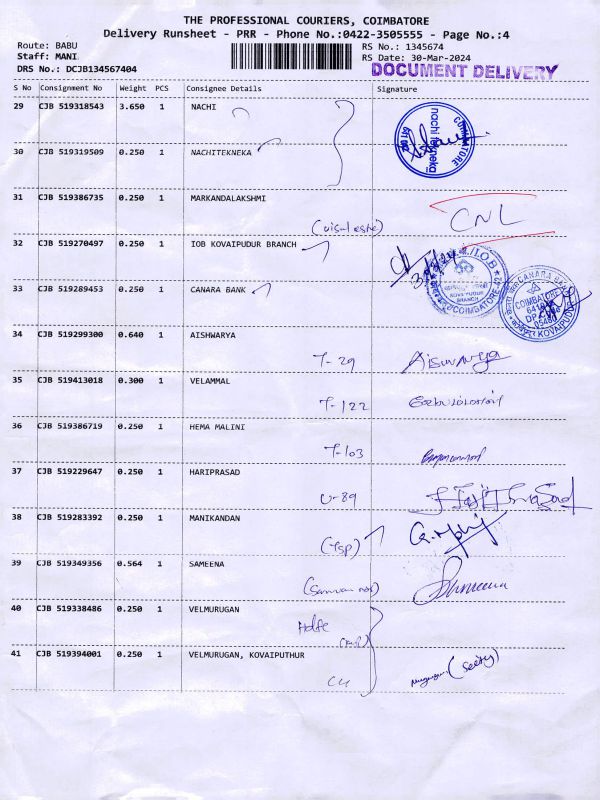 THE PROFESSIONAL COURIERS, COIMBATORE
Delivery Runsheet - PRR - Phone No.:0422-3505555 - Page No.:4
Route: BABU
RS No.: 1345674
Staff: MANI
RS Date: 30-Mar-2024
DRS No.: DCJB134567404
DOCUMENT DELIVERY
S No Consignment No Weight PCS Consignee Details Signature
29 CJB 519318543 3.650 1 NACHI
nachi tekneka
COIMBATORE
30 CJB 519319509 0.250 1 NACHITEKNEKA
31 CJB 519386735 0.250 1 MARKANDALAKSHMI
CNL
32 CJB 519270497 0.250 1 IOB KOVAIPUDUR BRANCH
I.O.B
COIMBATORE-42
33 CJB 519289453 0.250 1 CANARA BANK
CANARA BANK
COIMBATORE
KOVAIPUDUR
34 CJB 519299300 0.640 1 AISHWARYA
T-29 Aiswarya
35 CJB 519413018 0.300 1 VELAMMAL
T-122
36 CJB 519386719 0.250 1 HEMA MALINI
T-103
37 CJB 519229647 0.250 1 HARIPRASAD
U-89
38 CJB 519283392 0.250 1 MANIKANDAN
(Tsp)
39 CJB 519349356 0.564 1 SAMEENA
Sameena
40 CJB 519338486 0.250 1 VELMURUGAN
41 CJB 519394001 0.250 1 VELMURUGAN, KOVAIPUTHUR